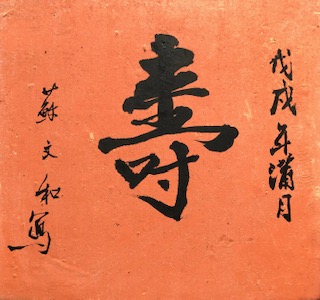 戊戌年蒲月
壽
蘇文和寫